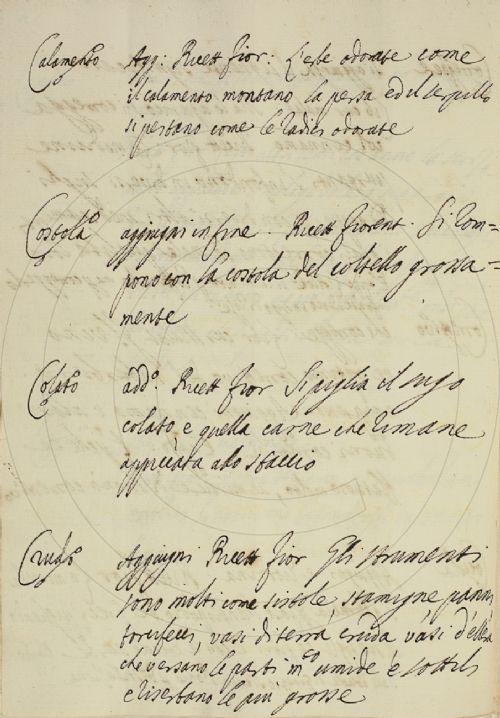 Calamento Agg: Ricett fior: L'erbe odorate come
il calamento montano la persa ed il serpillo
si pestano come le radici odorate
Costola aggiugni in fine. Ricett fiorent. Si rom=
pono con la costola del coltello grossa=
mente
Colato add.º Ricett fior Si piglia il sugo
colato e quella carne che rimane
appiccata allo staccio
Crudo Aggiugni Ricett fior Gli strumenti
sono molti come stamigne, panni
vasi di terra cruda vasi d'ellera
che versano le parti umide e sottili
e riserbano le più grosse